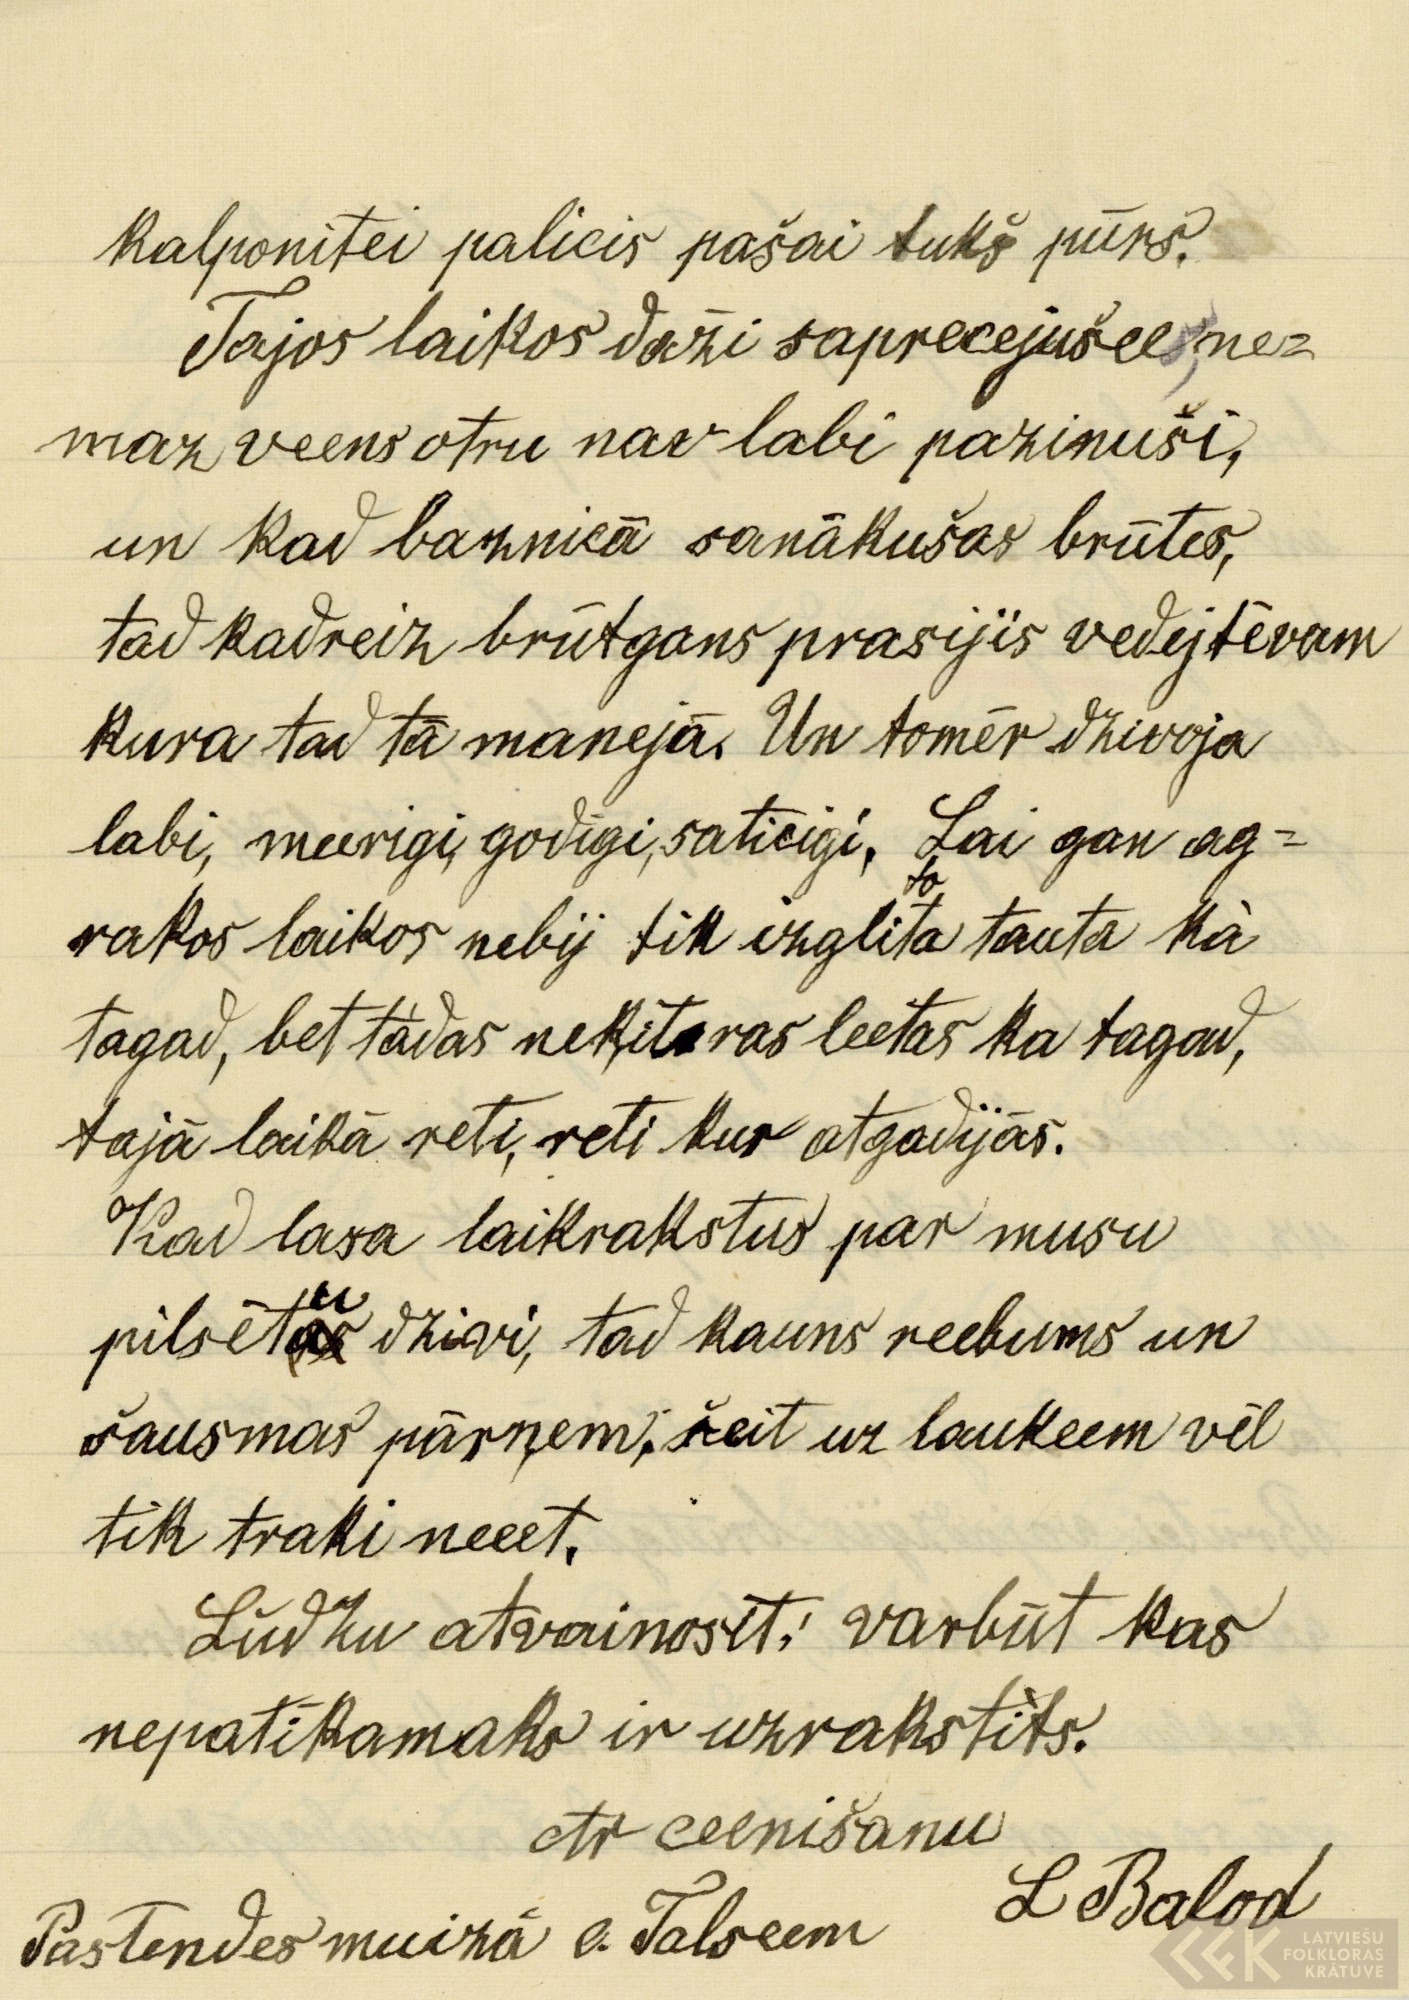 kalponītei palicis pašai tukš pūrs.
Tajos laikos daži saprecejušees, ne=
maz veens otru nav labi pazinuši,
un kad baznicā sanākušas brūtes,
tad kadreiz brūtgans prasijis vedejtēvam
kura tad tā manejā. Un tomēr dzivoja
labi, meerigi, godigi, saticigi. Lai gan ag=
rakos laikos nebij tik izglitota tauta kà
tagad, bet tàdas neķitras leetas ka tagad,
tajā laikā reti, reti kur atgadijās.
Kad lasa laikrakstus par musu
pilsētu dzivi, tad kauns reebums un
šausmas pārņem; šeit uz laukeem vēl
tik traki neeet.
Lūdzu atvainosit! varbūt kas
nepatīkamaks ir uzrakstìts.
Ar ceenišanu
L Balod
Pastendes muižā c. Talseem
LATVIEŠU
FOLKLORAS
KRĀTUVE